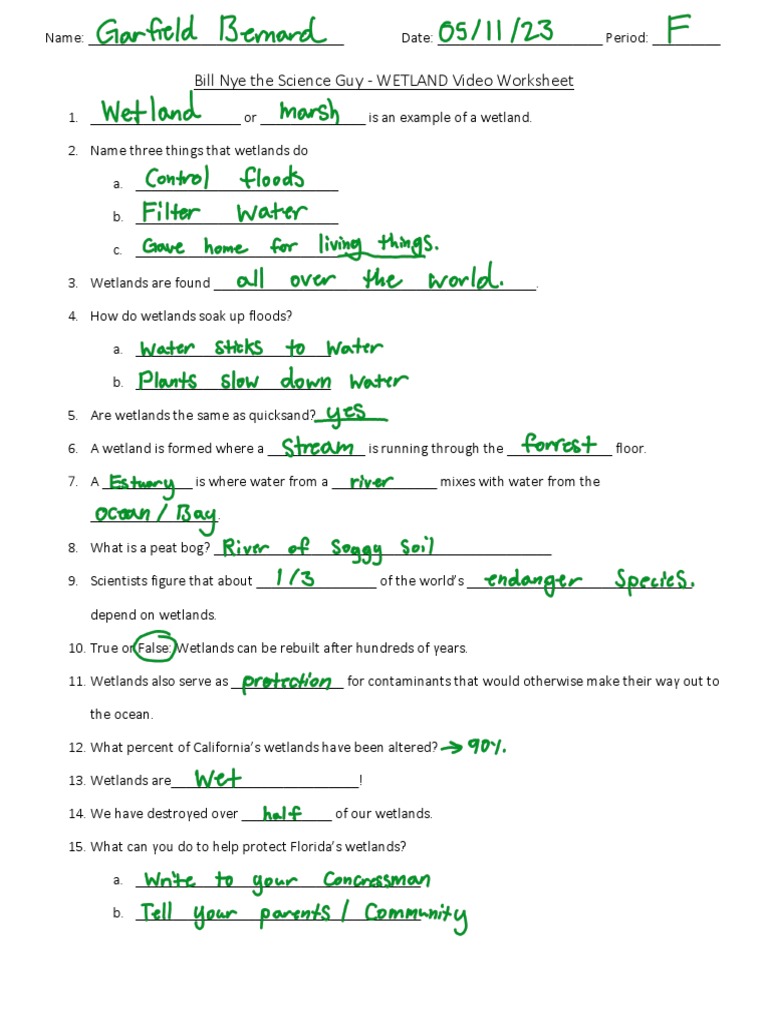 Name: Garfield Bernard Date: 05/11/23 Period: F
Bill Nye the Science Guy - WETLAND Video Worksheet
1. Wetland or marsh is an example of a wetland.
2. Name three things that wetlands do
a. Control floods
b. Filter Water
c. Gave home for living things.
3. Wetlands are found all over the world.
4. How do wetlands soak up floods?
a. Water sticks to Water
b. Plants slow down Water
5. Are wetlands the same as quicksand? yes
6. A wetland is formed where a Stream is running through the forrest floor.
7. A Estuary is where water from a river mixes with water from the
Ocean / Bay.
8. What is a peat bog? River of Soggy Soil
9. Scientists figure that about 1/3 of the world's endanger Species.
depend on wetlands.
10. True or False: Wetlands can be rebuilt after hundreds of years.
11. Wetlands also serve as protection for contaminants that would otherwise make their way out to
the ocean.
12. What percent of California's wetlands have been altered? → 90%.
13. Wetlands are Wet!
14. We have destroyed over half of our wetlands.
15. What can you do to help protect Florida's wetlands?
a. Write to your Concressman
b. Tell your parents / Community